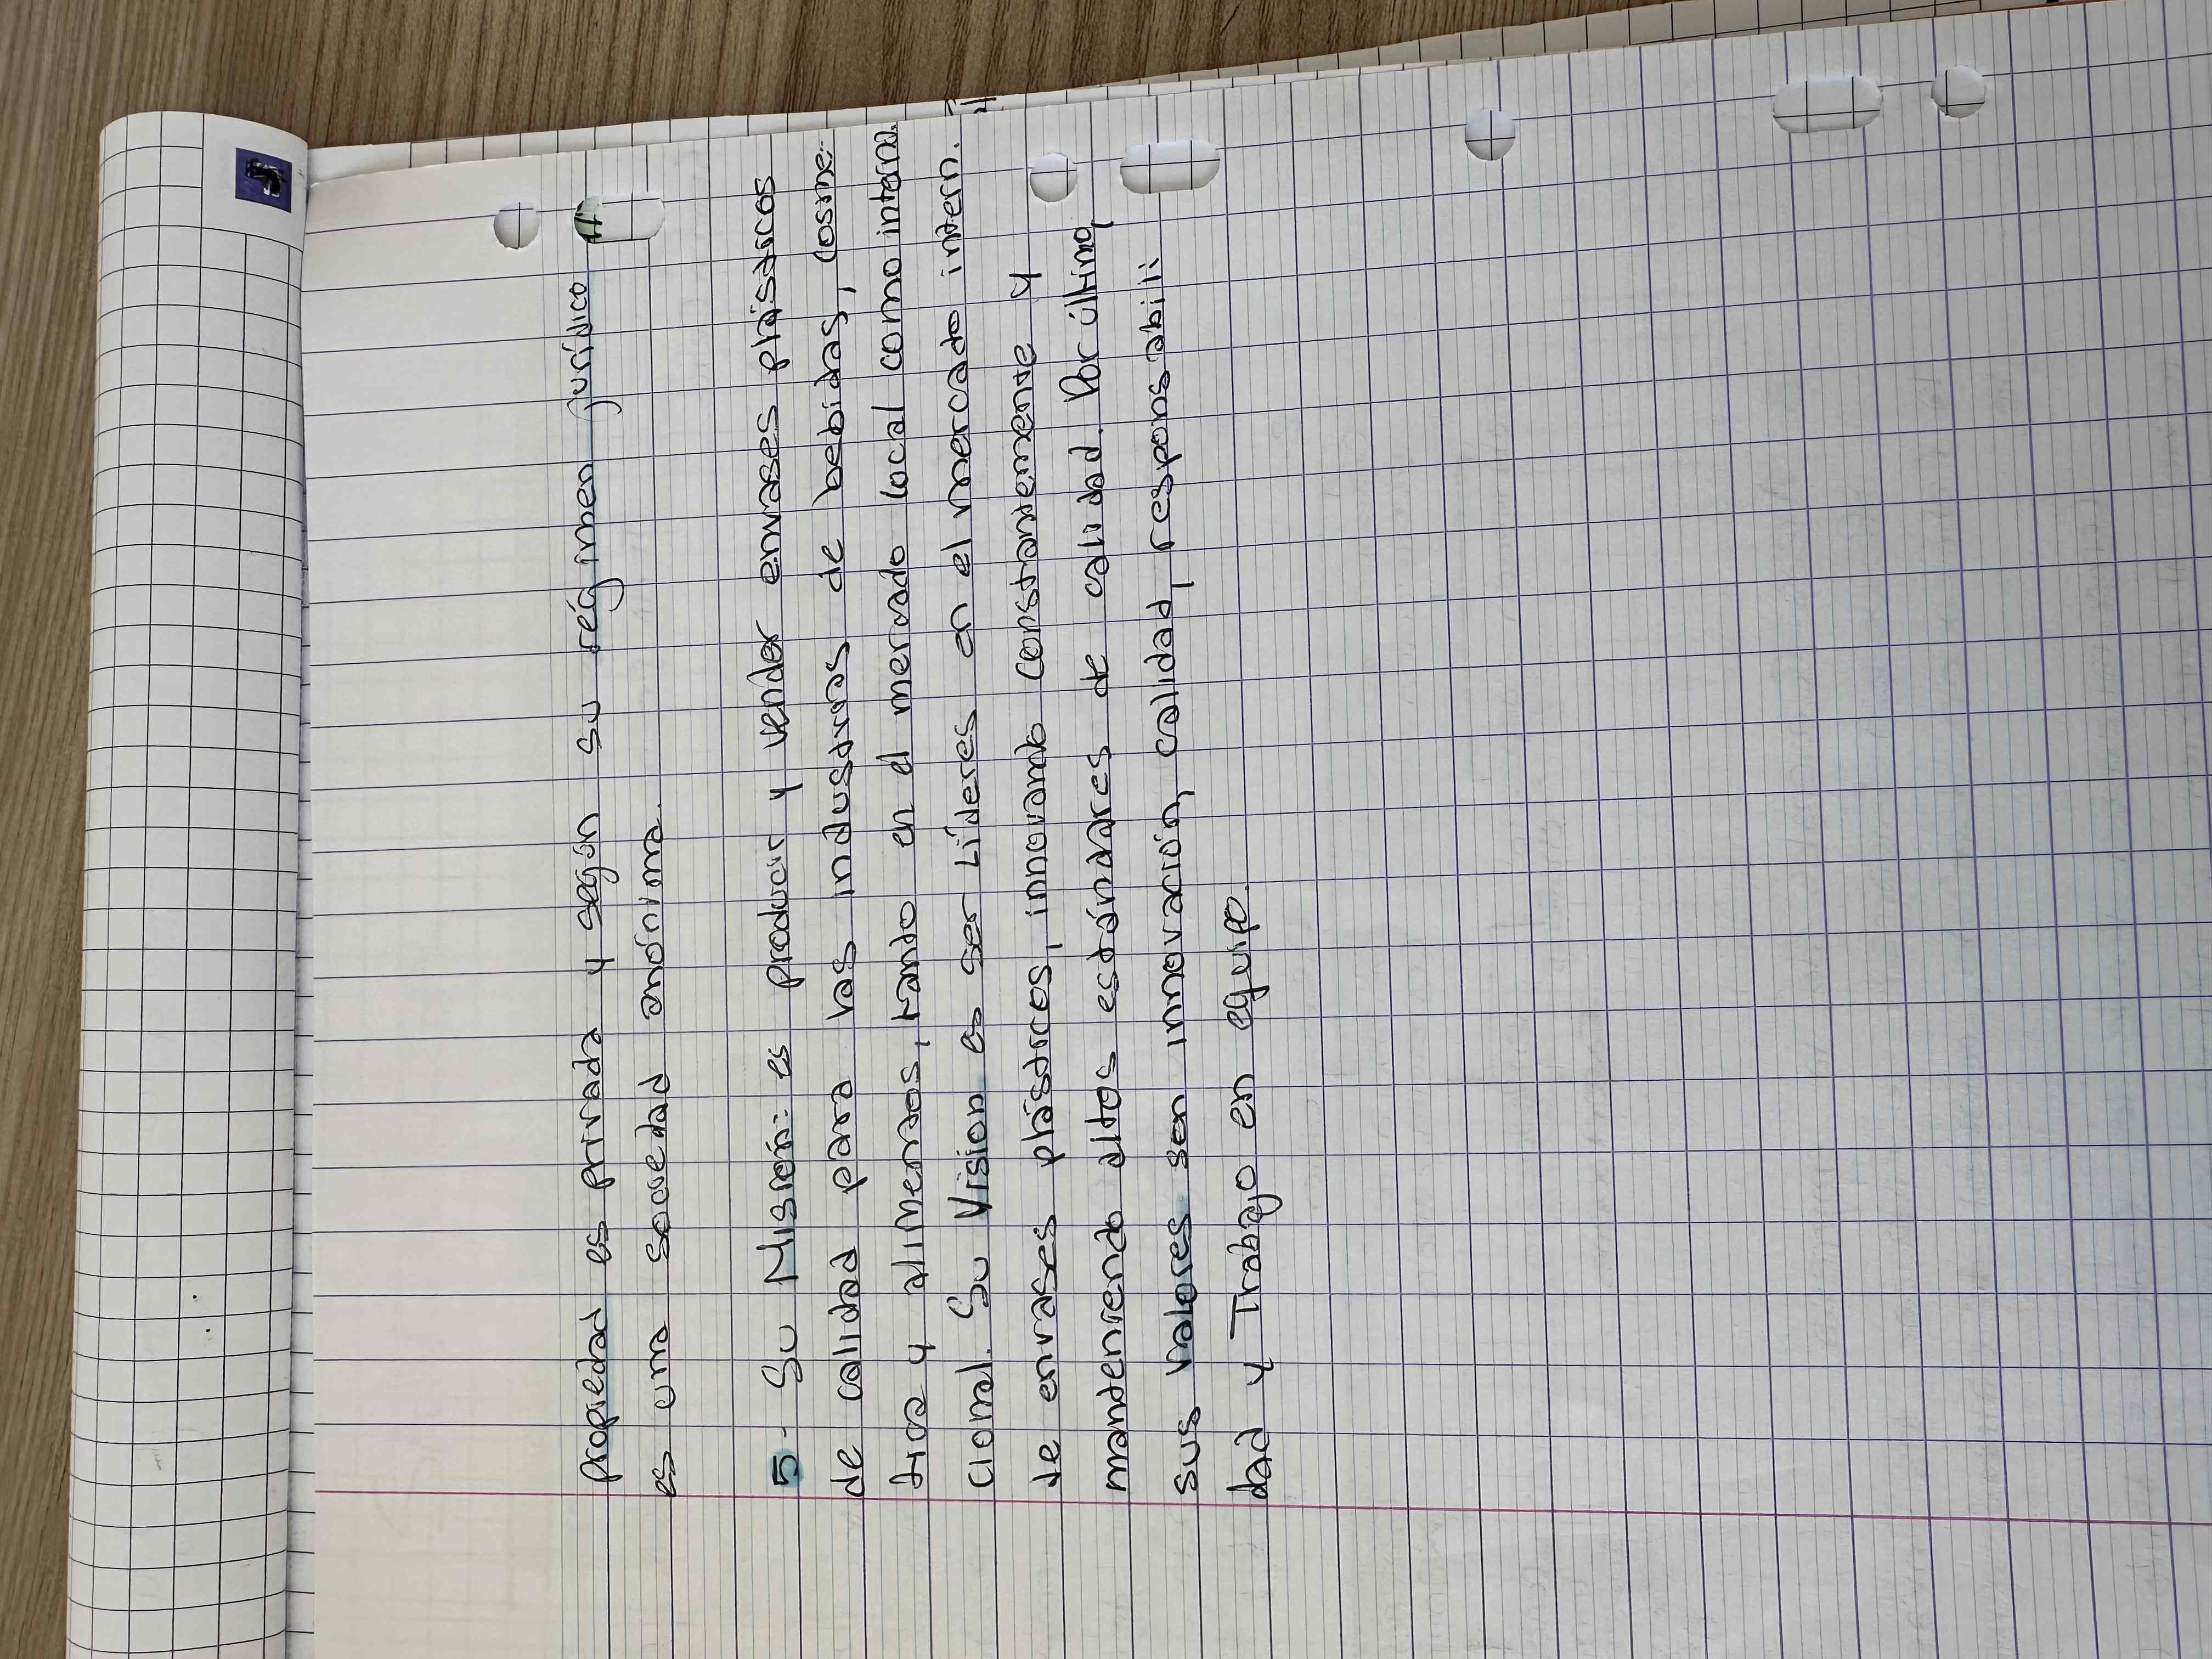 propiedad es privada y según su régimen jurídico
es una sociedad anónima.
5- Su Misión: es producir y vender envases plásticos
de calidad para las industrias de bebidas, cosme-
tica y alimentos, tanto en el mercado local como interna
cional. Su Vision es ser Líderes en el mercado intern.
de envases plásticos, innovando constantemente y
manteniendo altos estándares de calidad. Por último,
sus valores son innovación, calidad, responsabili-
dad y Trabajo en equipo.